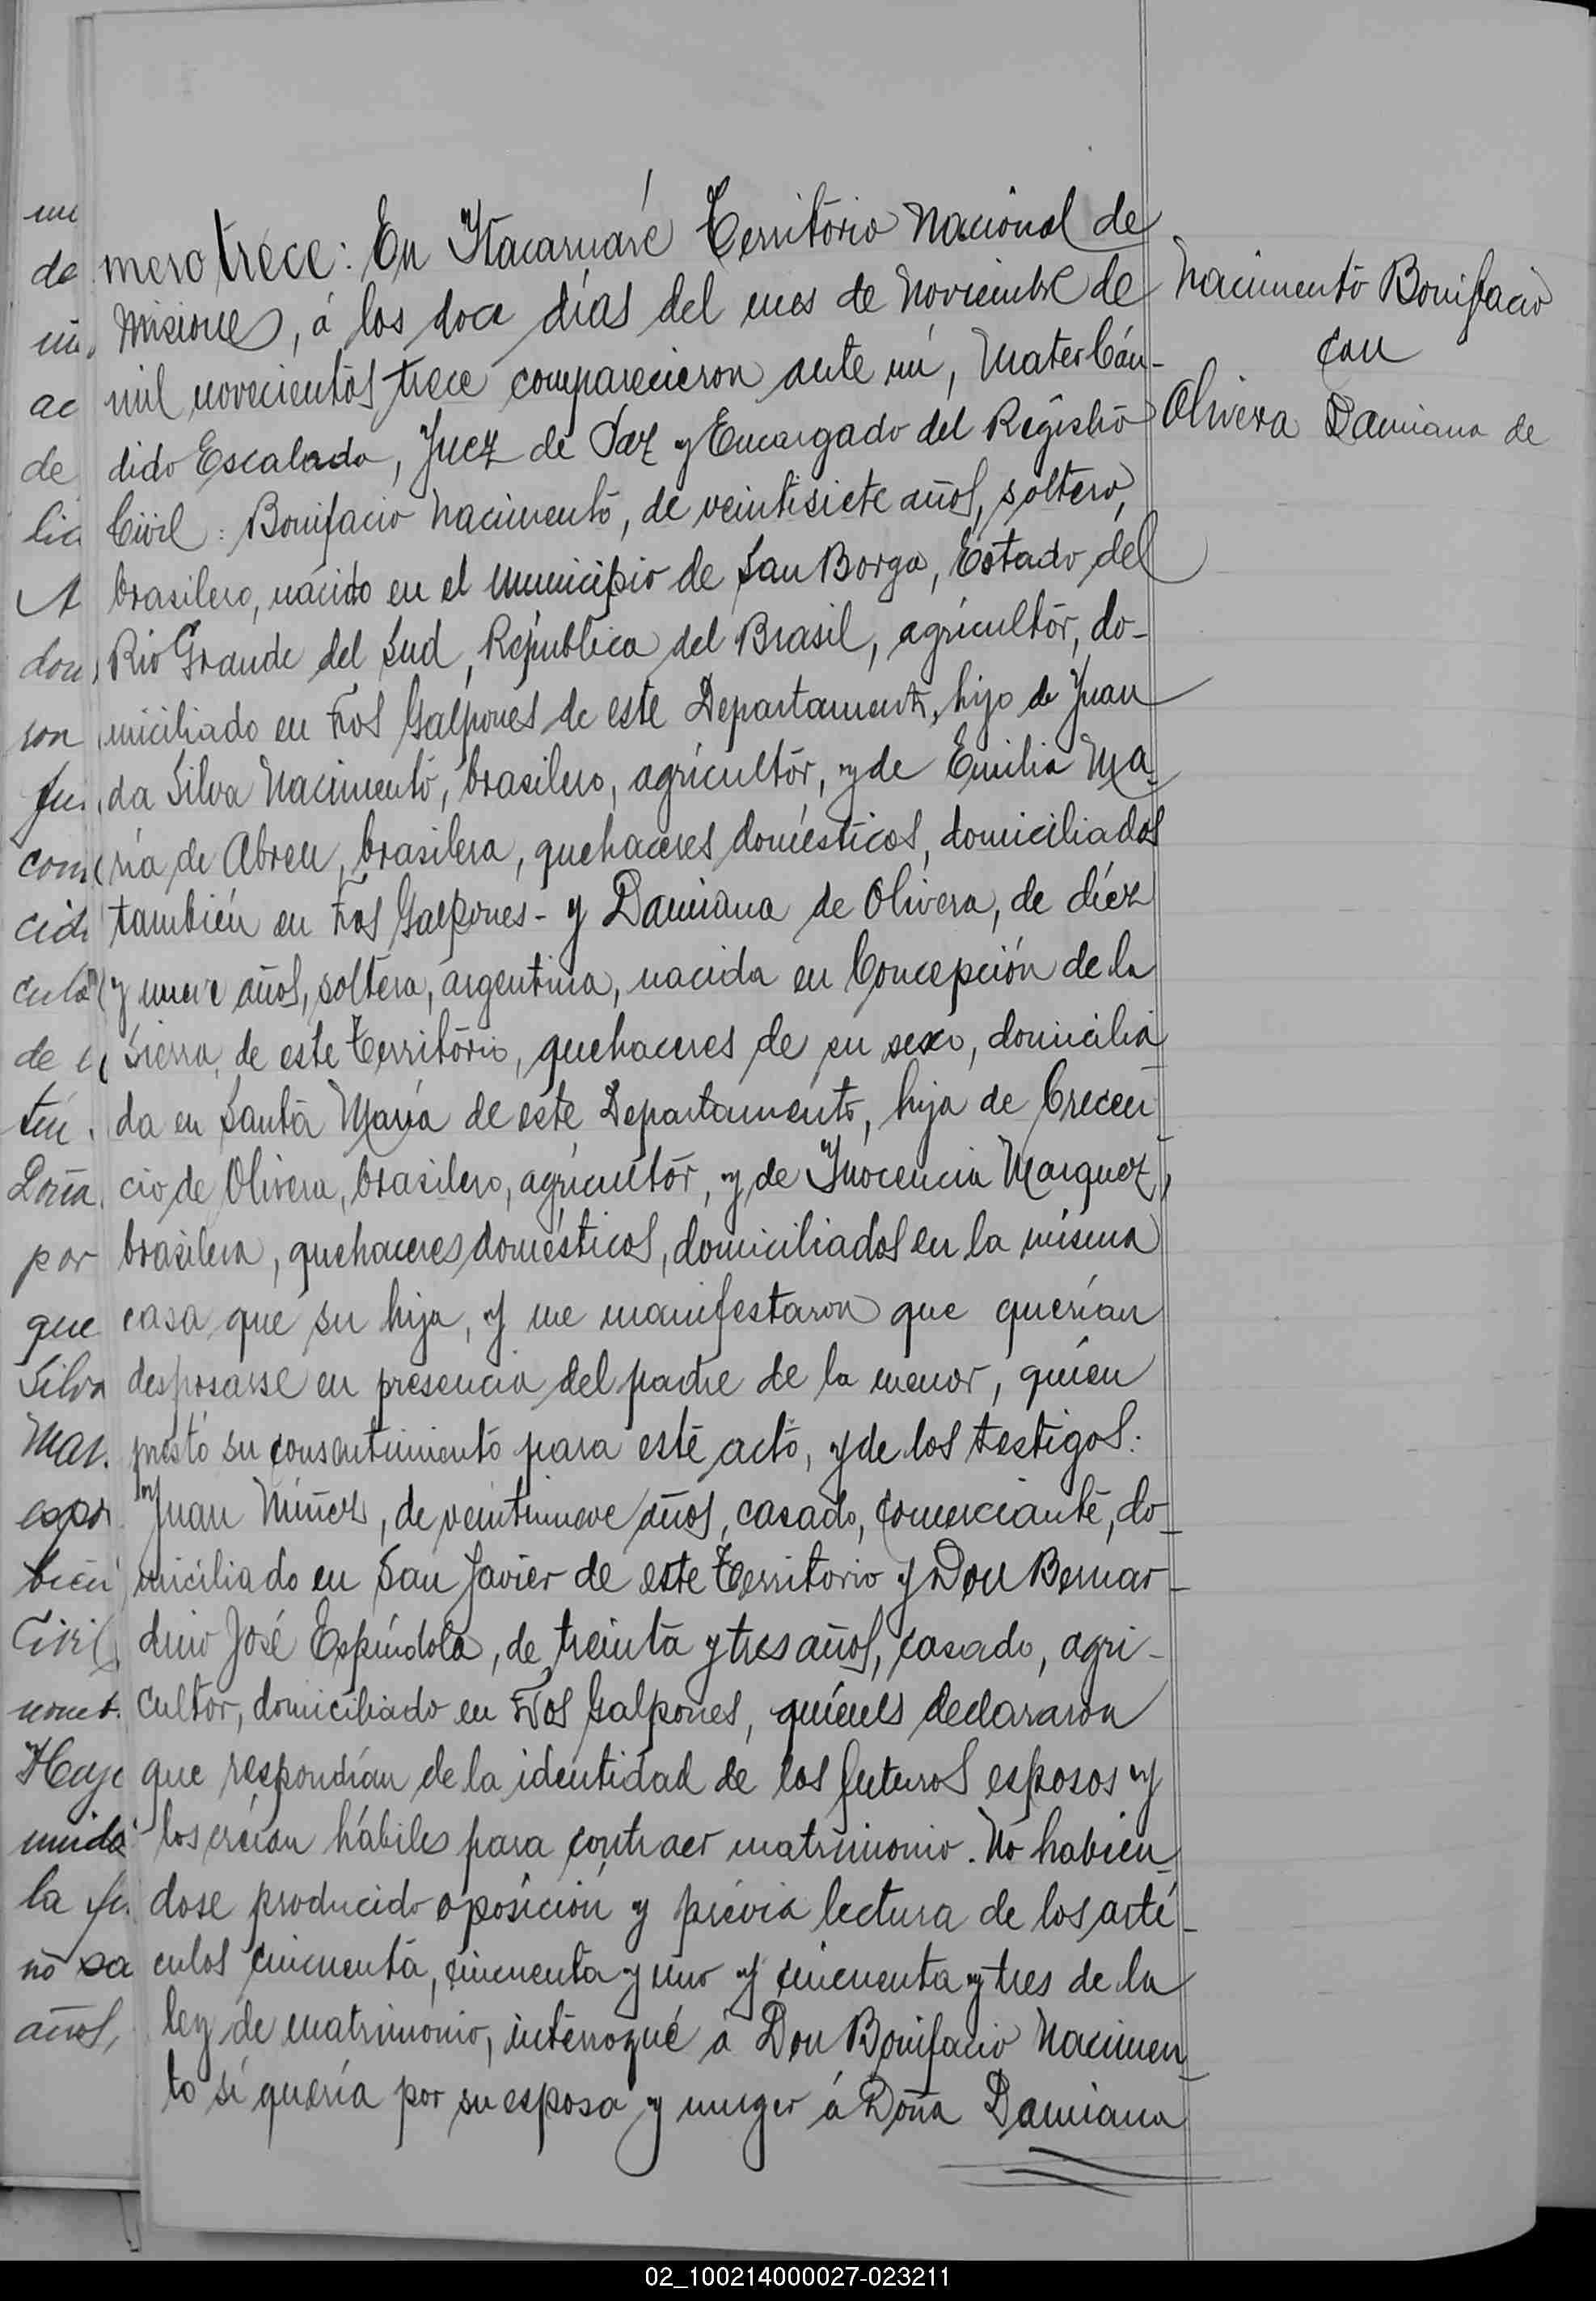 mero trece: En Itacaruaré Território Nacional de
Misiones, á los doce días del mes de Noviembre de
mil novecientos trece comparecieron ante mí, Mater Cán-
dido Escalada, Juez de Paz y Encargado del Registro
Civil: Bonifacio Nacimento, de veintisiete años, soltero,
brasilero, nacido en el Municipio de San Borga, Estado del
Rio Grande del Sud, República del Brasil, agricultor, do-
miciliado en Tros Galpones de este Departamento, hijo de Juan
da Silva Nacimento, brasilero, agricultor, y de Emilia Ma-
ria de Abreu, brasilera, quehaceres domésticos, domiciliados
también en Tros Galpones - y Damiana de Olivera, de diez
y nueve años, soltera, argentina, nacida en Concepción de la
Sierra, de este Território, quehaceres de su sexo, domicilia-
da en Santa María de este Departamento, hija de Crecen-
cio de Olivera, brasilero, agricultor, y de Inocencia Marquez,
brasilera, quehaceres domésticos, domiciliados en la misma
casa que su hija, y me manifestaron que querían
desposarse en presencia del padre de la menor, quien
prestó su consentimiento para este acto, y de los testigos:
Juan Núñez, de veintinueve años, casado, comerciante, do-
miciliado en San Javier de este Territorio y Don Bernar-
dino José Espíndola, de treinta y tres años, casado, agri-
cultor, domiciliado en Tros Galpones, quienes declararon
que respondían de la identidad de los futuros esposos y
los creían hábiles para contraer matrimonio. No habien-
dose producido oposición y prévia lectura de los artí-
culos cincuenta, cincuenta y uno y cincuenta y tres de la
ley de matrimonio, interrogué á Don Bonifacio Nacimen-
to si quería por su esposa y muger á Doña Damiana
Nacimento Bonifacio
con
Olivera Damiana de
de
ac
de
A
son
de
Doña
por
que
Silva
Mar.
Civil
la
no
años,
02_100214000027-023211